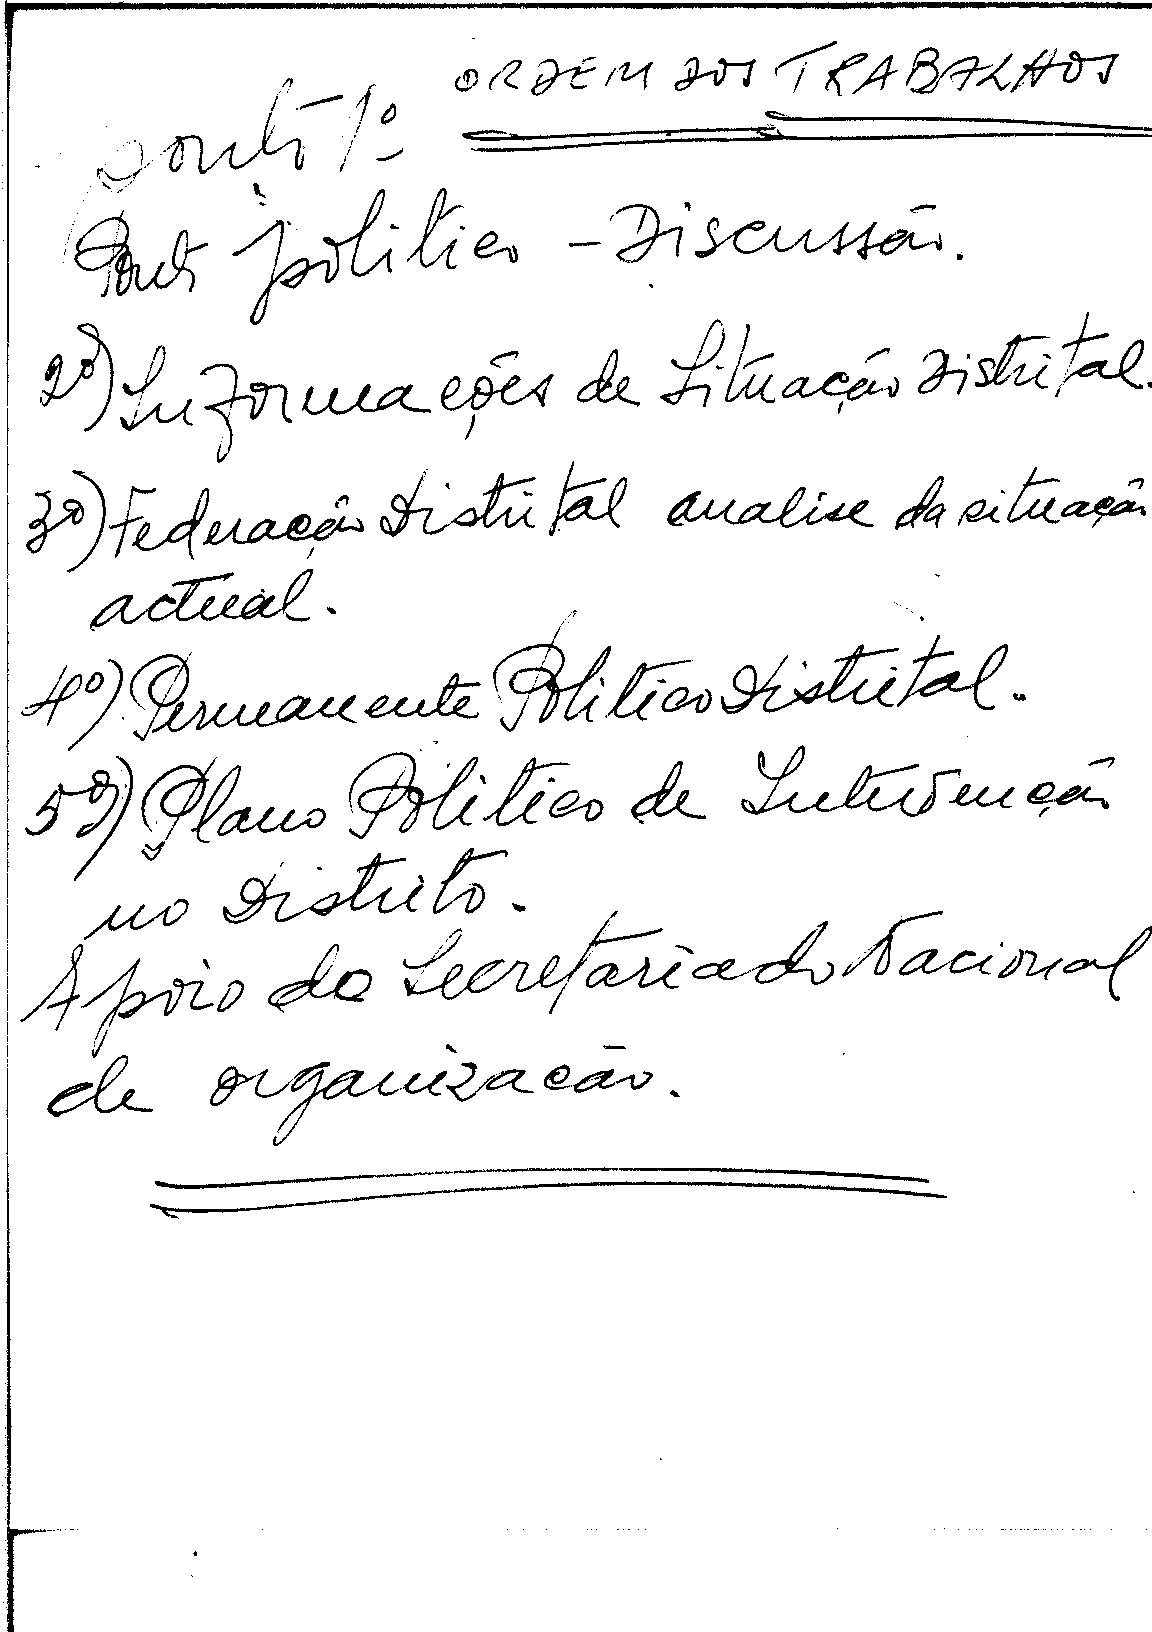 ORDEM DOS TRABALHOS
ponto 1º
Ponto politico - Discussão.
2º) Informações de Situação Distrital.
3º) Federação Distrital analise da situação
actual.
4º) Permanente Politico Distrital.
5º) Plano Politico de Intervenção
no Distrito.
Apoio do Secretariado Nacional
de organização.